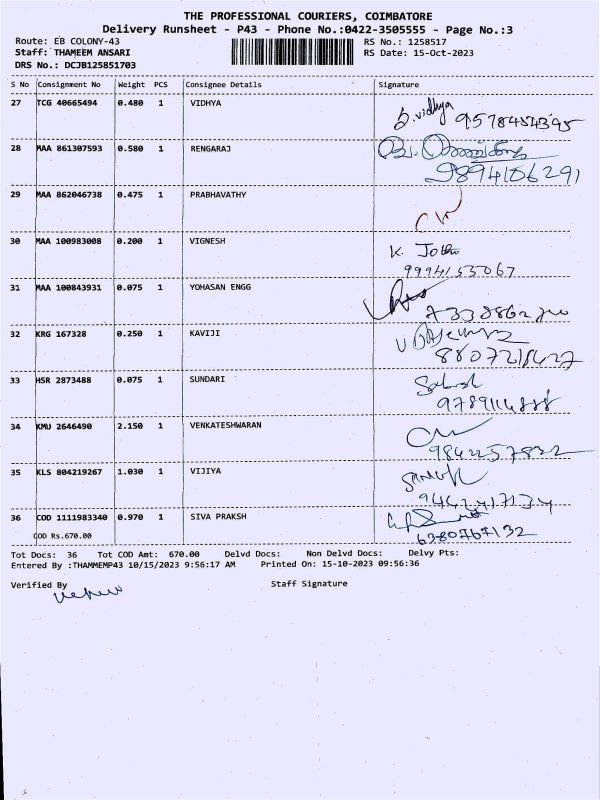 THE PROFESSIONAL COURIERS, COIMBATORE
Delivery Runsheet - P43 - Phone No.:0422-3505555 - Page No.:3
Route: EB COLONY-43 RS No.: 1258517
Staff: THAMEEM ANSARI RS Date: 15-Oct-2023
DRS No.: DCJB125851703
S No Consignment No Weight PCS Consignee Details Signature
27 TCG 40665494 0.480 1 VIDHYA
S. vidhya 9578454395
28 MAA 861307593 0.580 1 RENGARAJ
9894106291
29 MAA 862046738 0.475 1 PRABHAVATHY
30 MAA 100983008 0.200 1 VIGNESH
K. Jothi
9994155067
31 MAA 100843931 0.075 1 YOHASAN ENGG
32 KRG 167328 0.250 1 KAVIJI
33 HSR 2873488 0.075 1 SUNDARI
34 KMU 2646490 2.150 1 VENKATESHWARAN
9842257822
35 KLS 804219267 1.030 1 VIJIYA
9442417134
36 COD 1111983340 0.970 1 SIVA PRAKSH
COD Rs.670.00
6380767132
Tot Docs: 36 Tot COD Amt: 670.00 Delvd Docs: Non Delvd Docs: Delvy Pts:
Entered By :THAMMEMP43 10/15/2023 9:56:17 AM Printed On: 15-10-2023 09:56:36
Verified By Staff Signature